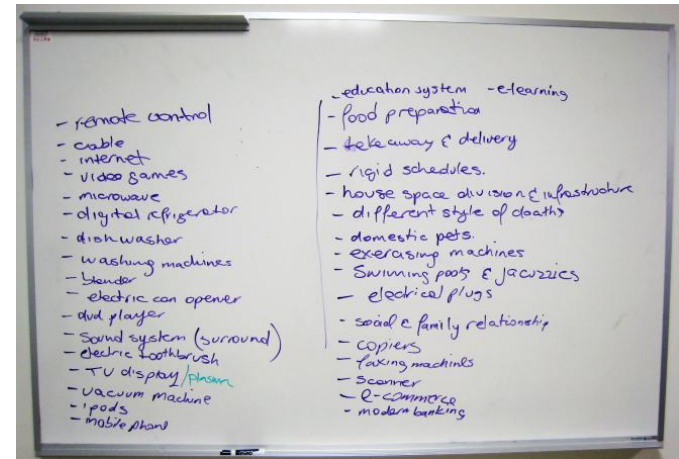 - remote control
- cable
- internet
- video games
- microwave
- digital refrigerator
- dishwasher
- washing machines
- blender
- electric can opener
- dvd player
- sound system (surround)
- electric toothbrush
- TV display/plasma
- vacuum machine
- ipods
- mobile phone
- education system - e-learning
- food preparation
- take away & delivery
- rigid schedules.
- house space division & infrastructure
- different style of cloaths
- domestic pets.
- exercising machines
- Swimming pools & jacuzzies
- electrical plugs
- social & family relationship
- copiers
- faxing machines
- scanner
- e-commerce
- modern banking